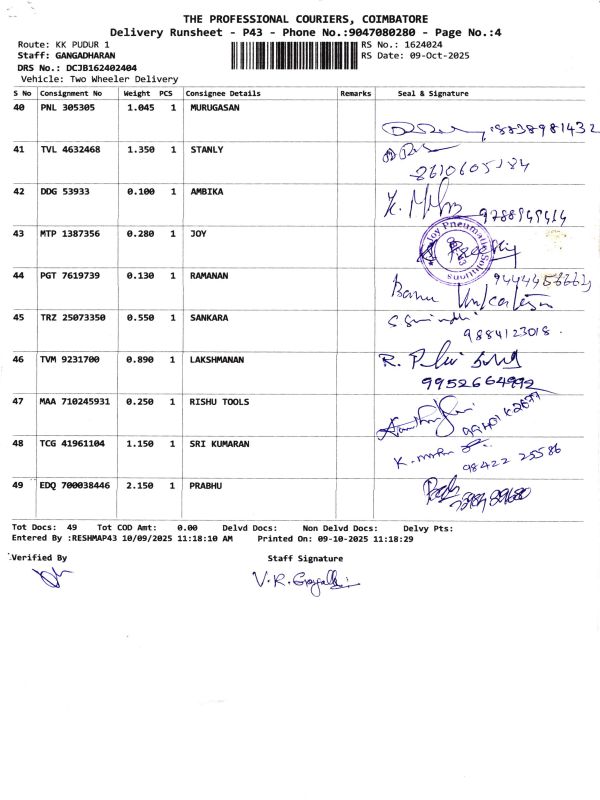 THE PROFESSIONAL COURIERS, COIMBATORE
Delivery Runsheet - P43 - Phone No.:9047080280 - Page No.:4
Route: KK PUDUR 1 RS No.: 1624024
Staff: GANGADHARAN RS Date: 09-Oct-2025
DRS No.: DCJB162402404
Vehicle: Two Wheeler Delivery
S No Consignment No Weight PCS Consignee Details Remarks Seal & Signature
40 PNL 305305 1.045 1 MURUGASAN
8838981432
41 TVL 4632468 1.350 1 STANLY
42 DDG 53933 0.100 1 AMBIKA
43 MTP 1387356 0.280 1 JOY
Joy Pneumatic Solutions
44 PGT 7619739 0.130 1 RAMANAN
45 TRZ 25073350 0.550 1 SANKARA
9884123018.
46 TVM 9231700 0.890 1 LAKSHMANAN
9952664992
47 MAA 710245931 0.250 1 RISHU TOOLS
48 TCG 41961104 1.150 1 SRI KUMARAN
98422 25586
49 EDQ 700038446 2.150 1 PRABHU
Tot Docs: 49 Tot COD Amt: 0.00 Delvd Docs: Non Delvd Docs: Delvy Pts:
Entered By :RESHMAP43 10/09/2025 11:18:10 AM Printed On: 09-10-2025 11:18:29
Verified By Staff Signature